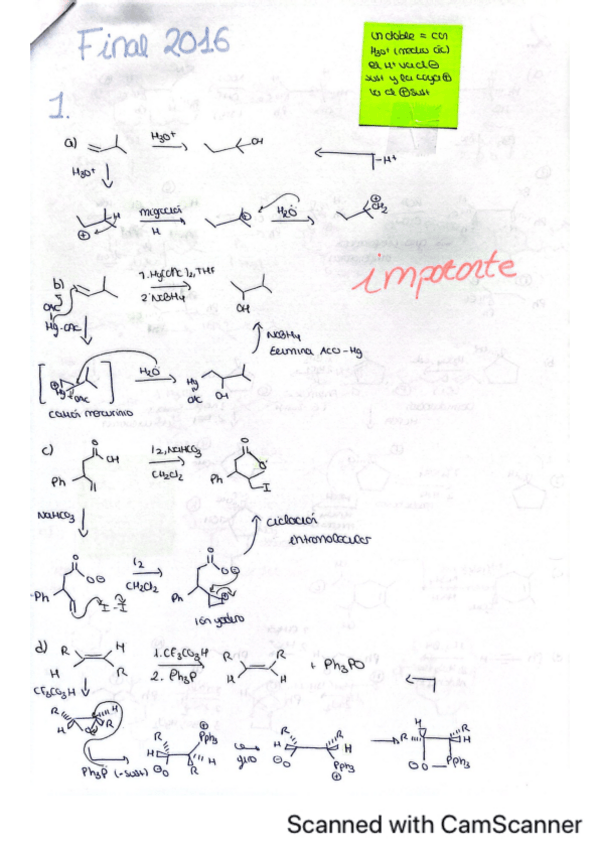 Final 2016
un doble = con
H₃O⁺ (medio ác)
el H⁺ va al ⊖
sust y la carga ⊕
la al ⊕ sust
1.
a) H₃O⁺ OH
H₃O⁺ -H⁺
H migración H H₂O ⊕ OH₂
importante
b) 1. Hg(OAc)₂, THF
2. NaBH₄
OH
OAc
Hg-OAc
NaBH₄
Elimina AcO-Hg
H₂O Hg OAc OH
catión mercurinio
c) O OH I₂, NaHCO₃ O
Ph CH₂Cl₂ Ph I
NaHCO₃
ciclación
intramolecular
O O⊖ I₂ O O⊖
Ph I-I CH₂Cl₂ Ph
ión yodonio
d) R H 1. CF₃CO₃H R R + Ph₃PO
H R 2. Ph₃P H H
CF₃CO₃H
R H
H O R
Ph₃P (-sust)
R ⊕ PPh₃ H ⊖O R H
giro
H R ⊖O R H PPh₃ ⊕
R H R H O PPh₃
Scanned with CamScanner